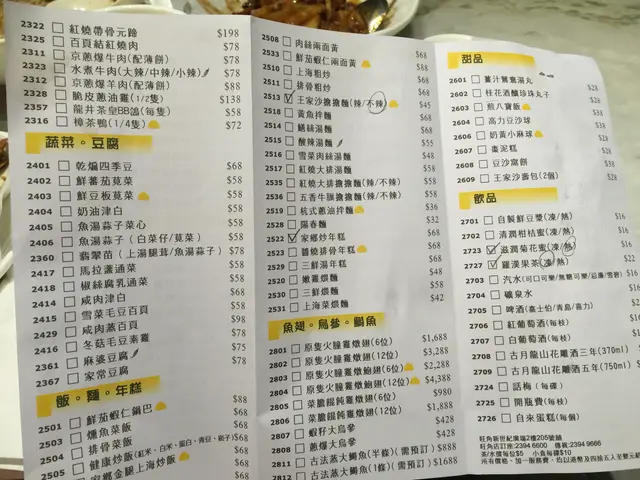 2322 紅燒帶骨元蹄 $198
2325 百頁結紅燒肉 $78
2311 京蔥爆牛肉(配薄餅) $78
2323 水煮牛肉(大辣/中辣/小辣) $78
2312 京蔥爆羊肉(配薄餅) $88
2328 脆皮蔥油雞(1/2隻) $138
2357 龍井茶皇BB鴿(每隻) $58
2316 樟茶鴨(1/4隻) $72
蔬菜。豆腐
2401 乾煸四季豆 $68
2402 鮮蕃茄莧菜 $58
2403 鮮豆板莧菜 $58
2404 奶油津白 $58
2405 魚湯蒜子菜心 $58
2406 魚湯蒜子(白菜仔/莧菜) $58
2360 翡翠苗(上湯腿茸/魚湯蒜子) $78
2417 馬拉盞通菜 $58
2418 椒絲腐乳通菜 $58
2414 咸肉津白 $68
2415 雪菜毛豆百頁 $58
2429 咸肉蒸百頁 $98
2416 冬菇毛豆素雞 $75
2361 麻婆豆腐 $78
2367 家常豆腐
飯。麵。年糕
2501 鮮茄蝦仁鍋巴 $88
2503 燻魚菜飯 $68
2504 排骨菜飯 $68
2505 健康炒飯(紅米、白米、蛋白、青豆、粟子) $68
家鄉金腿上海炒飯 $68
2508 肉絲兩面黃 $68
2533 鮮茄蝦仁兩面黃 $88
2510 上海粗炒 $68
2511 排骨粗炒 $68
2513 王家沙擔擔麵(辣/不辣) $45
2518 黃魚拌麵 $68
2514 鱔絲湯麵 $68
2515 酸辣湯麵 $55
2516 雪菜肉絲湯麵 $48
2517 紅燒大排湯麵 $58
2535 紅燒大排擔擔麵(辣/不辣) $58
2536 五香牛𦟌擔擔麵(辣/不辣) $58
2519 杭式蔥油拌麵 $36
2528 陽春麵 $32
2522 家鄉炒年糕 $68
2523 醬燒排骨年糕 $68
2529 三鮮湯年糕 $68
2520 嫩雞煨麵 $48
2530 三鮮煨麵 $58
2531 上海菜煨麵 $42
魚翅。烏參。鰣魚
2801 原隻火朣雞燉翅(6位) $1,688
2802 原隻火朣雞燉翅(12位) $3,288
2803 原隻火朣雞燉鮑翅(6位) $2,288
2804 原隻火朣雞燉鮑翅(12位) $4,388
2805 菜膽餛飩雞燉翅(6位) $980
2806 菜膽餛飩雞燉翅(12位) $1,888
2807 蝦籽大烏參 $428
2808 蔥爆大烏參 $428
2811 古法蒸大鰣魚(半條)(需預訂) $888
2812 古法蒸大鰣魚(1條)(需預訂) $1688
甜品
2601 薑汁鴛鴦湯丸 $28
2602 桂花酒釀珍珠丸子 $28
2603 煎八寶飯 $38
2604 高力豆沙球 $38
2606 奶黃小麻球 $38
2607 棗泥糕 $28
2608 豆沙窩餅 $38
2609 王家沙壽包(2個) $28
飲品
2701 自製鮮豆漿(凍/熱) $16
2702 清潤柑桔蜜(凍/熱) $22
2723 滋潤菊花蜜(凍/熱)
2727 羅漢果茶(凍/熱)
2703 汽水(可口可樂/無糖可樂/忌廉/雪碧) $16
2704 礦泉水
2705 啤酒(嘉士伯/青島/喜力)
2706 紅葡萄酒(每枝)
2707 白葡萄酒(每枝)
2708 古月龍山花雕酒三年(370ml)
2709 古月龍山花雕酒五年(750ml)
2724 話梅(每碟)
2725 開瓶費(每枝)
2726 自來蛋糕(每個)
旺角新世紀廣場2樓205號舖
旺角店訂座:2394 6600 傳真:2394 9666
茶/水價每位$5 小食每碟$10
所有價格,加一服務費,均以港幣及四捨五入至整元結